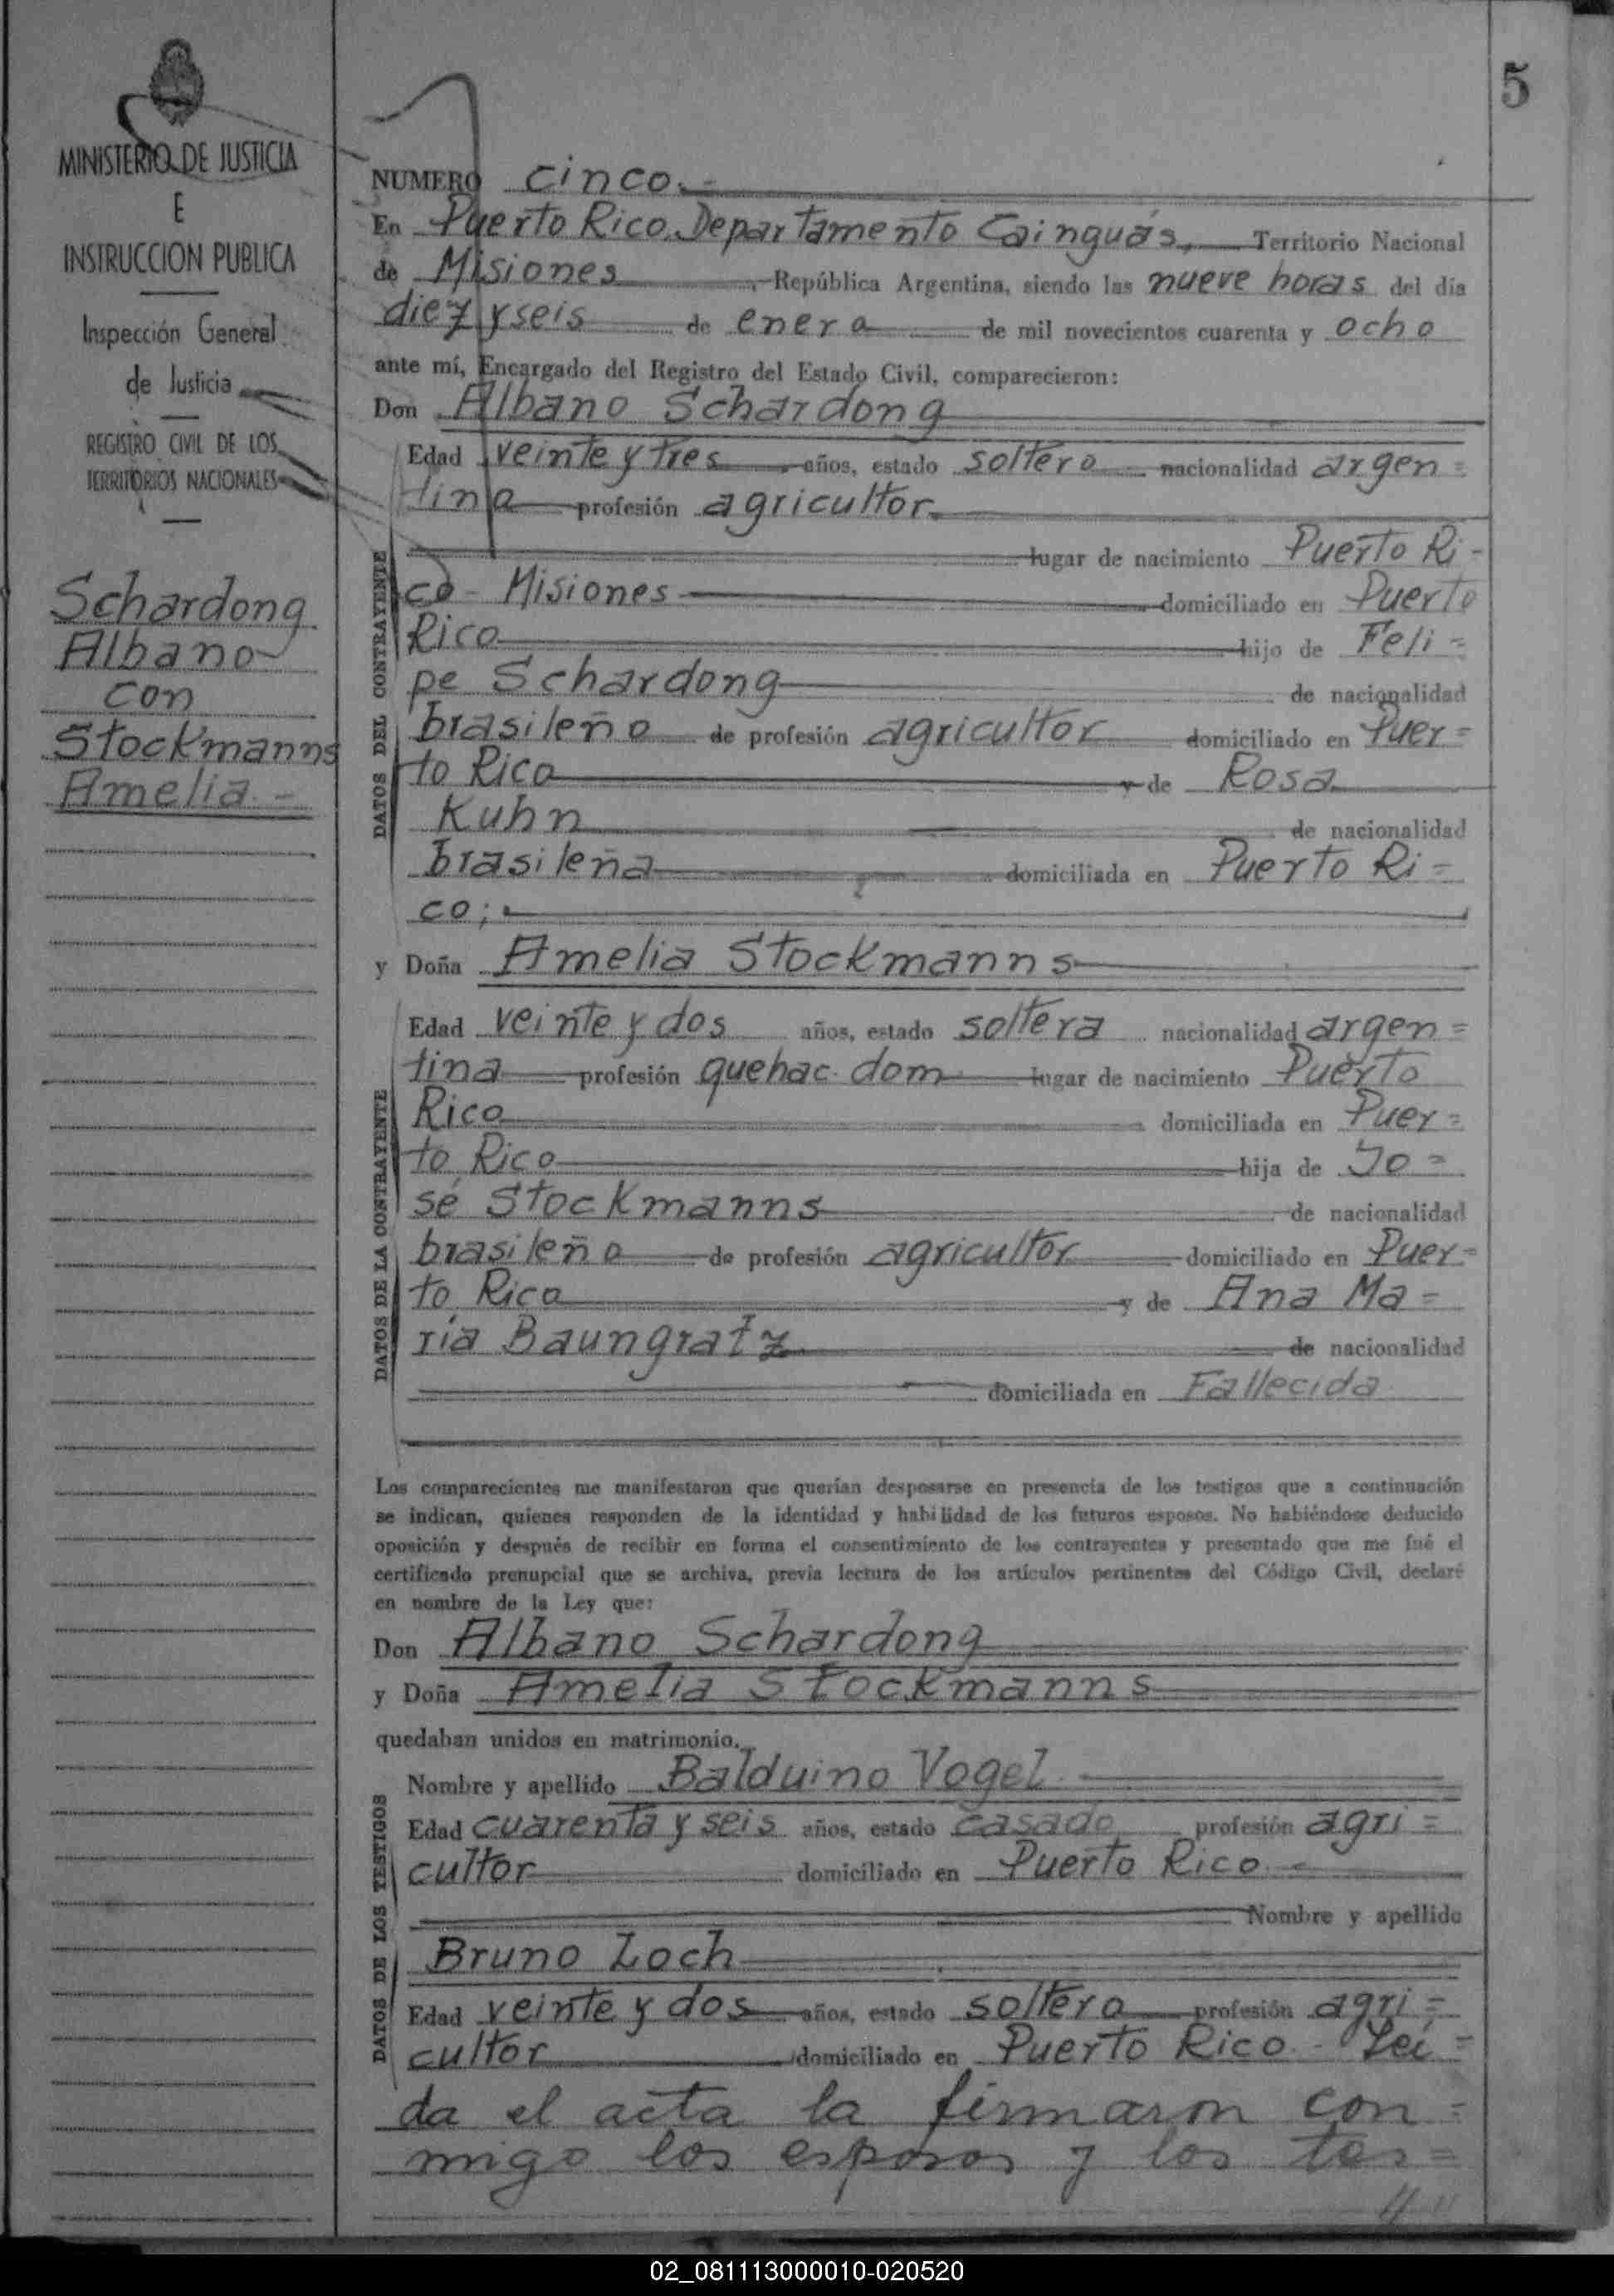 5
MINISTERIO DE JUSTICIA
E
INSTRUCCION PUBLICA
Inspección General
de Justicia
REGISTRO CIVIL DE LOS
TERRITORIOS NACIONALES
Schardong
Albano
con
Stockmanns
Amelia.-
NUMERO cinco.-
En Puerto Rico, Departamento Cainguás, Territorio Nacional
de Misiones, República Argentina, siendo las nueve horas del día
diez y seis de enero de mil novecientos cuarenta y ocho
ante mí, Encargado del Registro del Estado Civil, comparecieron:
Don Albano Schardong
DATOS DEL CONTRAYENTE
Edad veinte y tres años, estado soltero nacionalidad argen=
tina profesión agricultor.
lugar de nacimiento Puerto Ri-
co- Misiones domiciliado en Puerto
Rico hijo de Feli=
pe Schardong de nacionalidad
brasileño de profesión agricultor domiciliado en Puer=
to Rico y de Rosa
Kuhn de nacionalidad
brasileña domiciliada en Puerto Ri=
co;
y Doña Amelia Stockmanns
DATOS DE LA CONTRAYENTE
Edad veinte y dos años, estado soltera nacionalidad argen=
tina profesión quehac. dom lugar de nacimiento Puerto
Rico domiciliada en Puer=
to Rico hija de Jo=
sé Stockmanns de nacionalidad
brasileño de profesión agricultor domiciliado en Puer=
to Rico y de Ana Ma=
ria Baungratz de nacionalidad
domiciliada en Fallecida
Los comparecientes me manifestaron que querían desposarse en presencia de los testigos que a continuación
se indican, quienes responden de la identidad y habilidad de los futuros esposos. No habiéndose deducido
oposición y después de recibir en forma el consentimiento de los contrayentes y presentado que me fué el
certificado prenupcial que se archiva, previa lectura de los artículos pertinentes del Código Civil, declaré
en nombre de la Ley que:
Don Albano Schardong
y Doña Amelia Stockmanns
quedaban unidos en matrimonio.
DATOS DE LOS TESTIGOS
Nombre y apellido Balduino Vogel
Edad cuarenta y seis años, estado casado profesión agri=
cultor domiciliado en Puerto Rico.-
Nombre y apellido
Bruno Loch
Edad veinte y dos años, estado soltero profesión agri=
cultor domiciliado en Puerto Rico.- Leí=
da el acta la firmaron con=
migo los esposos y los tes=
02_081113000010-020520